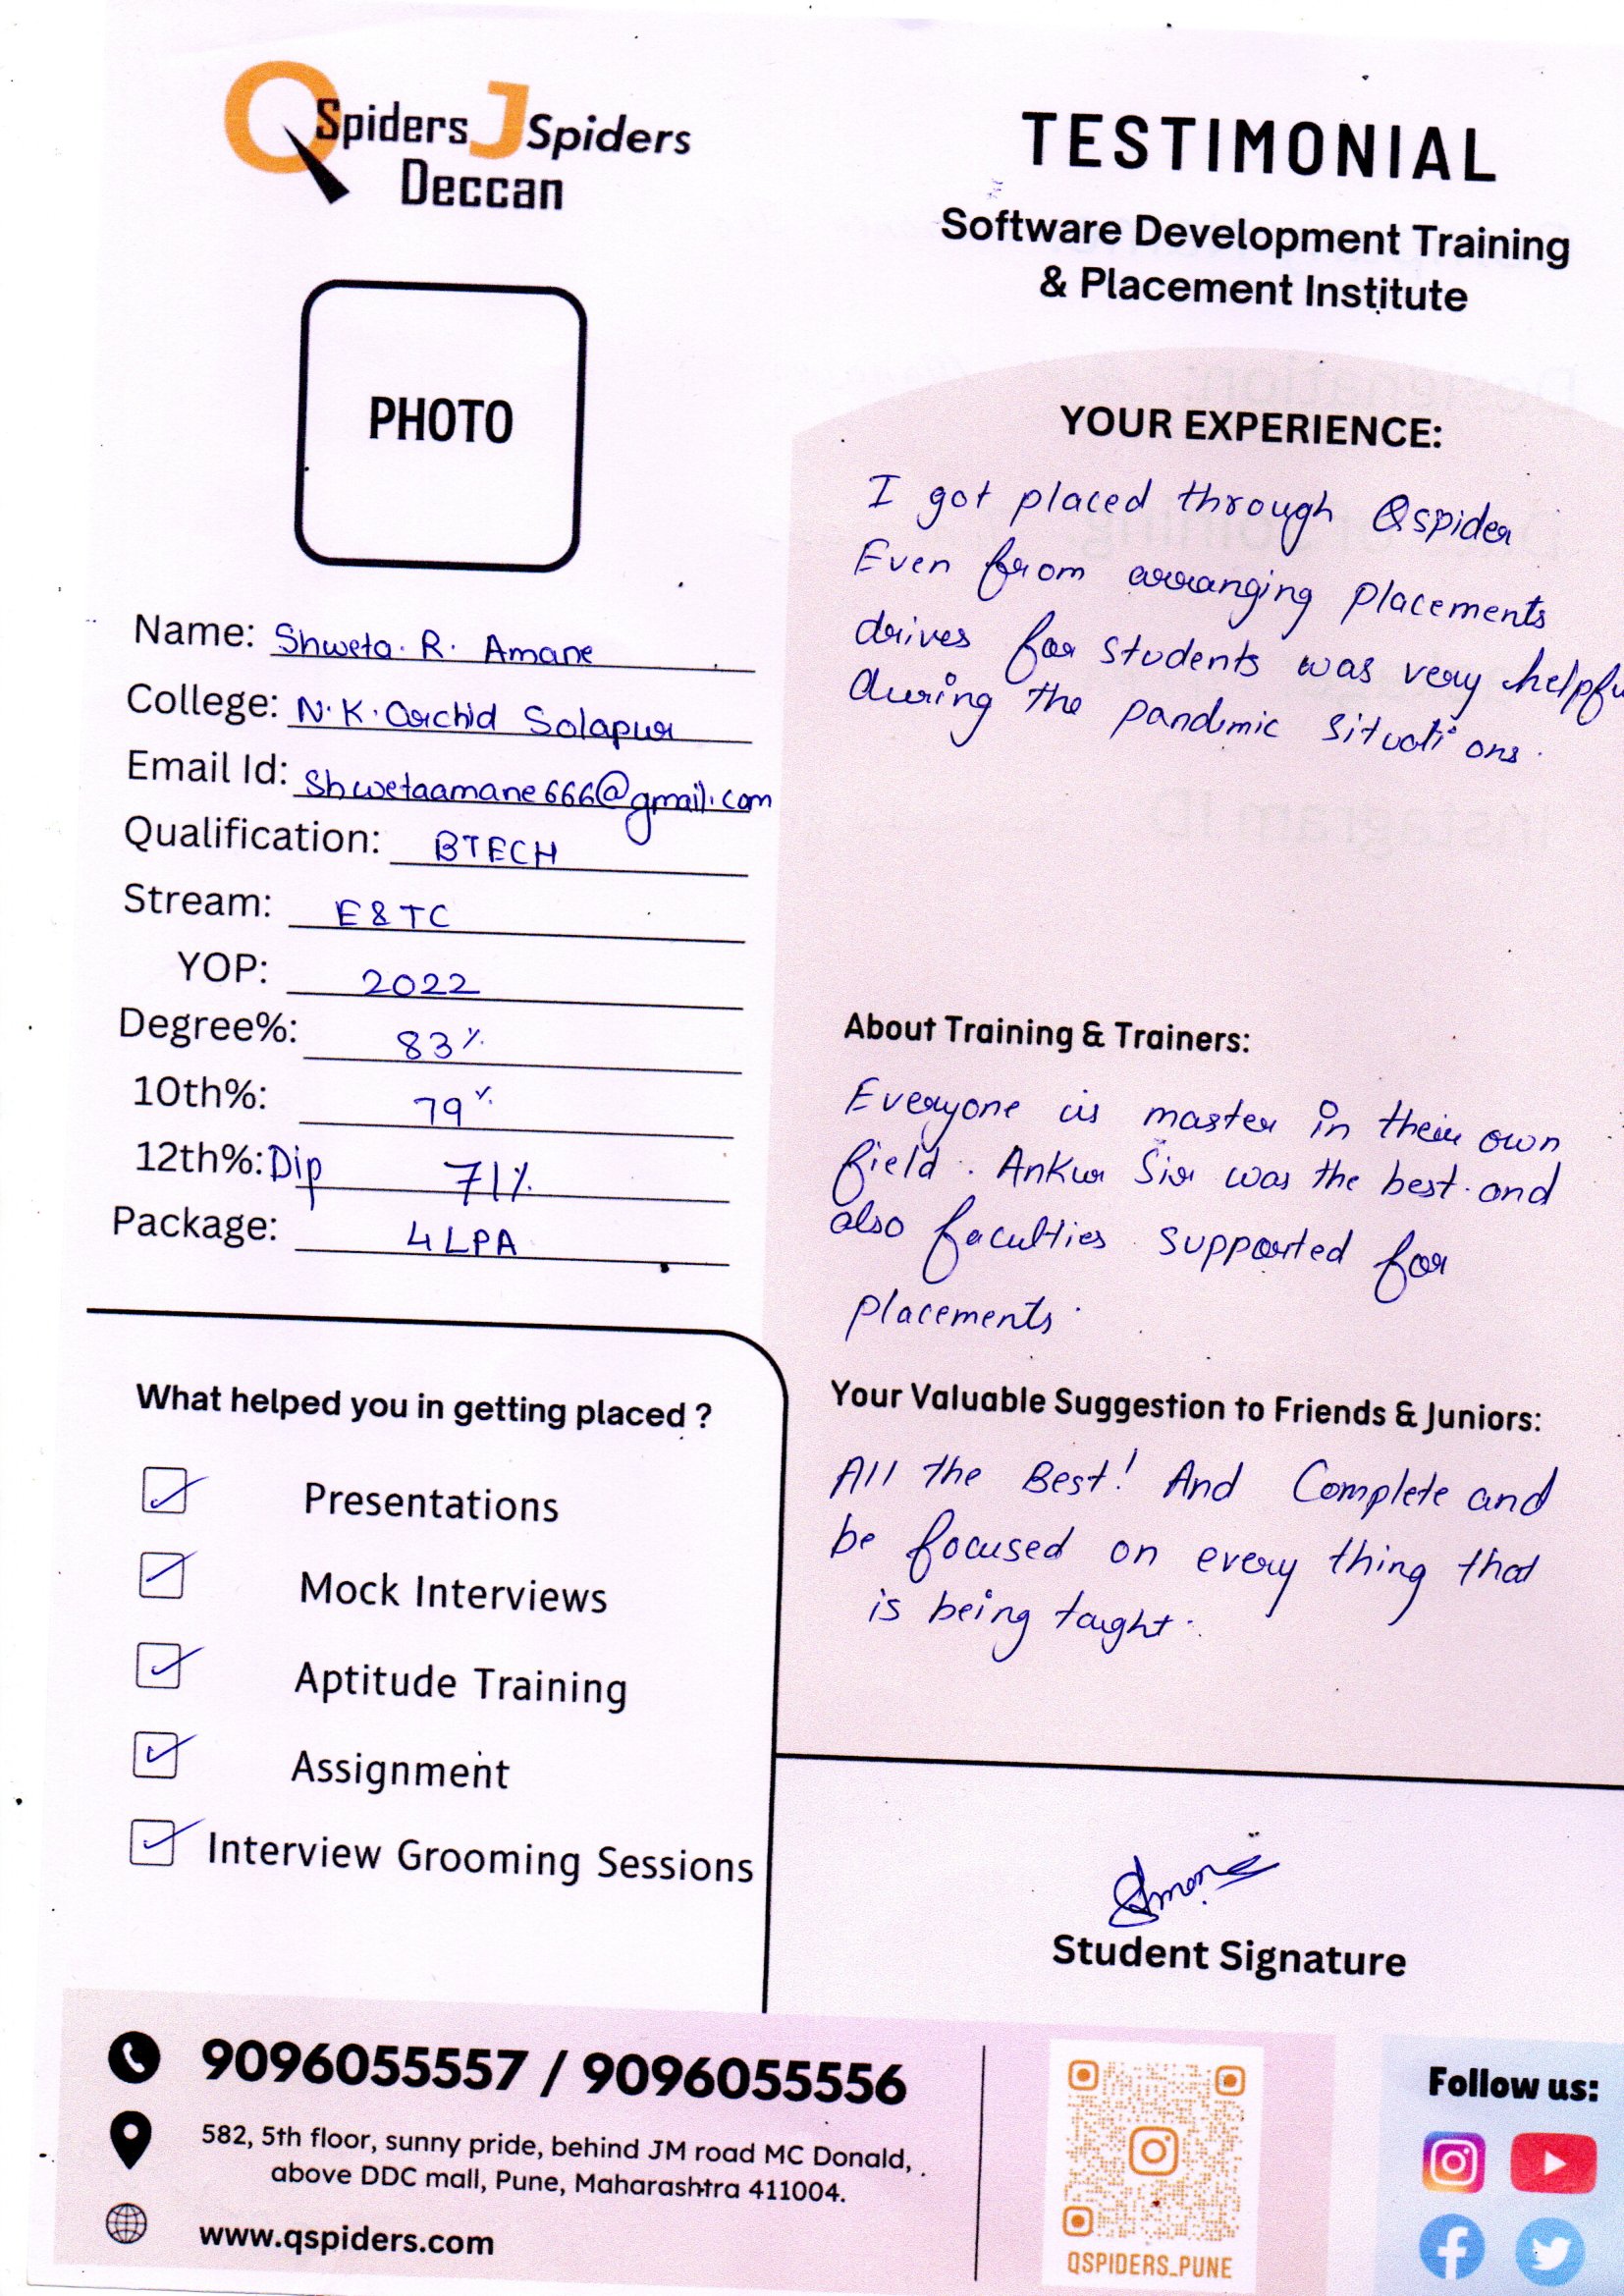 QSpiders JSpiders
Deccan
PHOTO
Name: Shweta. R. Amane
College: N.K. Orchid Solapur
Email Id: Shwetaamane666@gmail.com
Qualification: BTECH
Stream: E&TC
YOP: 2022
Degree%: 83%
10th%: 79%
12th%: Dip 71%
Package: 4 LPA
What helped you in getting placed ?
Presentations
Mock Interviews
Aptitude Training
Assignment
Interview Grooming Sessions
TESTIMONIAL
Software Development Training
& Placement Institute
YOUR EXPERIENCE:
I got placed through Qspider
Even from arranging placements
drives for students was very helpfu
during the pandemic situations.
About Training & Trainers:
Everyone is master in their own
field. Ankur Sir was the best. and
also faculties supported for
placements.
Your Valuable Suggestion to Friends & Juniors:
All the Best! And Complete and
be focused on every thing that
is being taught.
Student Signature
9096055557 / 9096055556
582, 5th floor, sunny pride, behind JM road MC Donald,
above DDC mall, Pune, Maharashtra 411004.
www.qspiders.com
QSPIDERS_PUNE
Follow us: